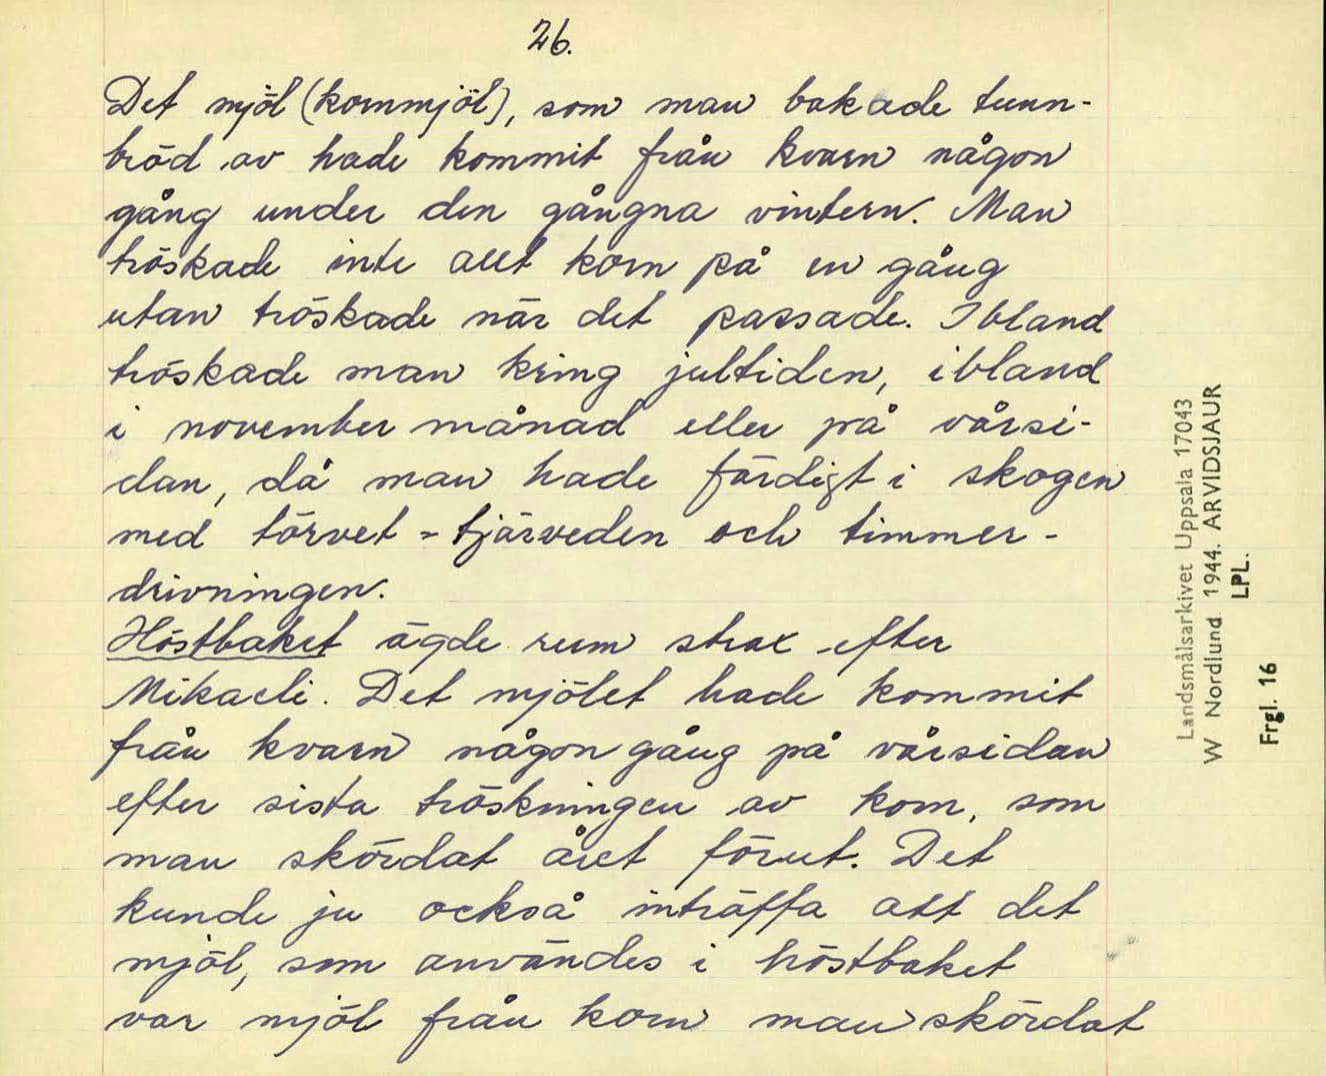 26.
Det mjöl (kornmjöl), som man bakade tunn-
bröd av hade kommit från kvarn någon
gång under den gångna vintern. Man
tröskade inte allt korn på en gång
utan tröskade när det passade. Ibland
tröskade man kring jultiden, ibland
i november månad eller på vårsi-
dan, då man hade färdigt i skogen
med törvet = tjärveden och timmer-
drivningen.
Höstbaket ägde rum strax efter
Mikaeli. Det mjölet hade kommit
från kvarn någon gång på vårsidan
efter sista tröskningen av korn, som
man skördat året förut. Det
kunde ju också inträffa att det
mjöl, som användes i höstbaket
var mjöl från korn man skördat
Landsmålsarkivet Uppsala 17043
W Nordlund 1944. ARVIDSJAUR
LPL.
Frgl. 16